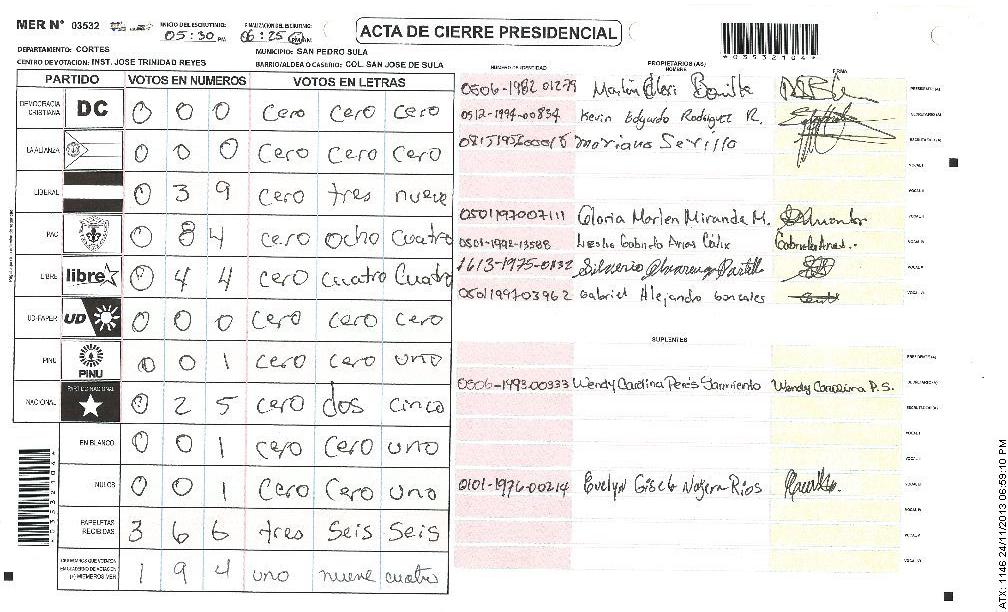 MER N° 03532
INICIO DEL ESCRUTINIO: 05:30 PM
FINALIZACION DEL ESCRUTINIO: 06:25 PM
ACTA DE CIERRE PRESIDENCIAL
*03532104*
DEPARTAMENTO: CORTES
MUNICIPIO: SAN PEDRO SULA
CENTRO DE VOTACION: INST. JOSE TRINIDAD REYES
BARRIO/ALDEA O CASERIO: COL. SAN JOSE DE SULA
PARTIDO VOTOS EN NUMEROS VOTOS EN LETRAS
DEMOCRACIA CRISTIANA DC 0 0 0 cero cero cero
LA ALIANZA 0 0 0 cero cero cero
LIBERAL 0 3 9 cero tres nueve
PAC 0 8 4 cero ocho cuatro
LIBRE libre 0 4 4 cero cuatro cuatro
UD-FAPER UD 0 0 0 cero cero cero
PINU PINU 0 0 1 cero cero uno
NACIONAL PARTIDO NACIONAL 0 2 5 cero dos cinco
EN BLANCO 0 0 1 cero cero uno
NULOS 0 0 1 cero cero uno
PAPELETAS RECIBIDAS 3 6 6 tres seis seis
1 9 4 uno nueve cuatro
NUMERO DE IDENTIDAD PROPIETARIOS (AS) NOMBRE FIRMA
0506-1982 01279 PRESIDENTE (A)
0512-1994-00834 Kevin Edgardo Rodriguez R. SECRETARIO (A)
Mariano Sevilla ESCRUTADOR (A)
VOCAL I
VOCAL II
0501197007111 Gloria Marlen Miranda M.
0501-1992-13588 Gabriela
1613-1975-0132 Silverio
0501199703962 Gabriel Alejandro Gonzales
SUPLENTES
0506-1993-00333 Wendy Carolina Perés Sarmiento Wendy Carolina P.S.
0101-1976-00214 Evelyn Gisela Najera Rios
ATX: 1146 24/11/2013 06:59:10 PM